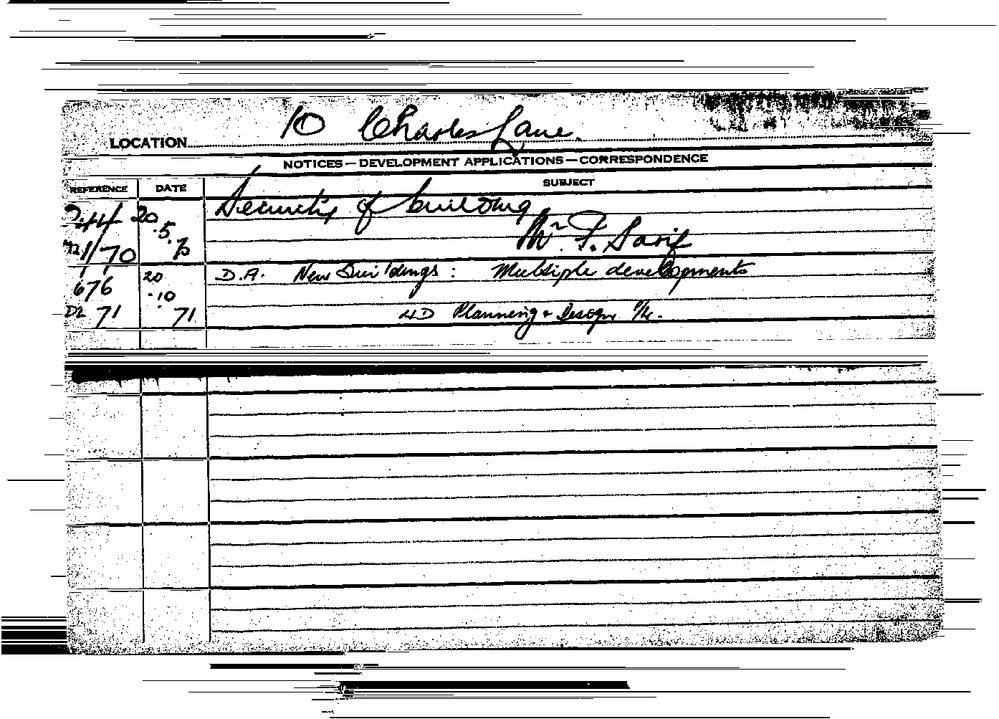 10 Charles Lane.
LOCATION
NOTICES—DEVELOPMENT APPLICATIONS—CORRESPONDENCE
REFERENCE DATE SUBJECT
244/ 20 Security of building
.5. Mr.
1/70
676 20 D.A. New Buildings: Multiple developments
.10
D2 71 71 Planning & Design P/L.